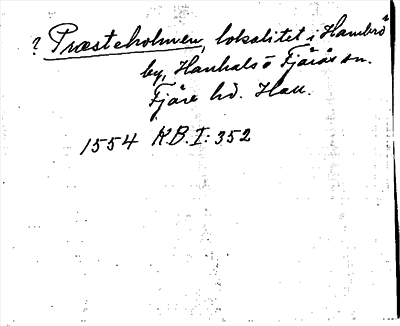 ? Præsteholmen, lokalitet i Hambrö
by, Hanhals o Fjärås sn.
Fjäre hd. Hall.
1554 KB. I: 352